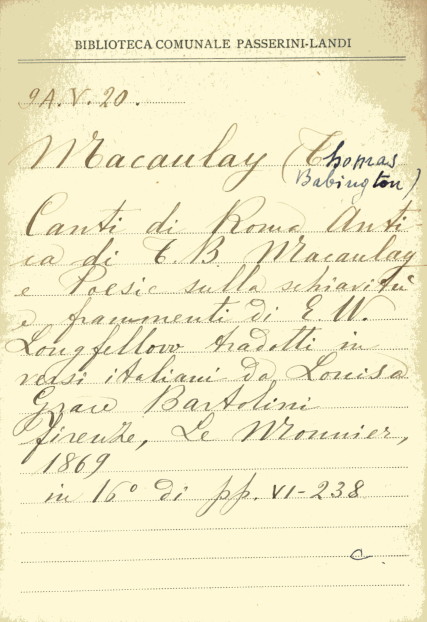 BIBLIOTECA COMUNALE PASSERINI-LANDI
9A.V.20.
Macaulay (Thomas
Babington)
Canti di Roma Anti-
ca di T. B Macaulay
e Poesie sulla schiavitù
e frammenti di E W.
Longfellow tradotti in
versi italiani da Louisa
Grace Bartolini
Firenze, Le Monnier,
1869
in 16° di pp. VI-238
C